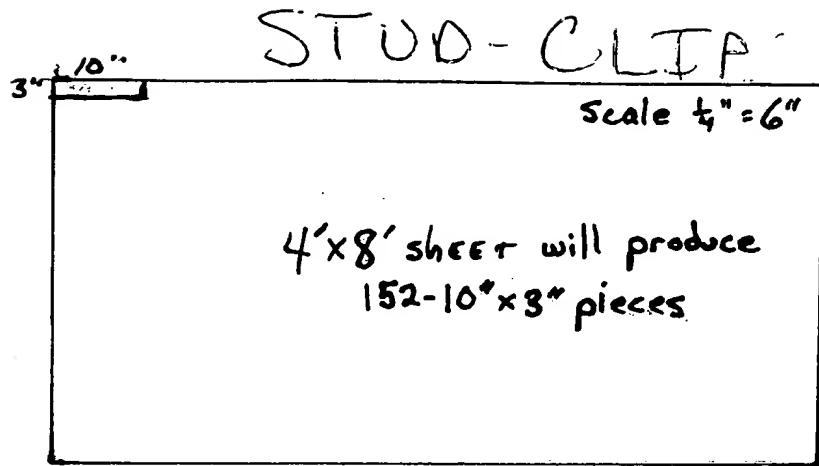 STUD-CLIP
10"
3"
Scale ¼" = 6"
4'x8' sheet will produce
152-10"x3" pieces